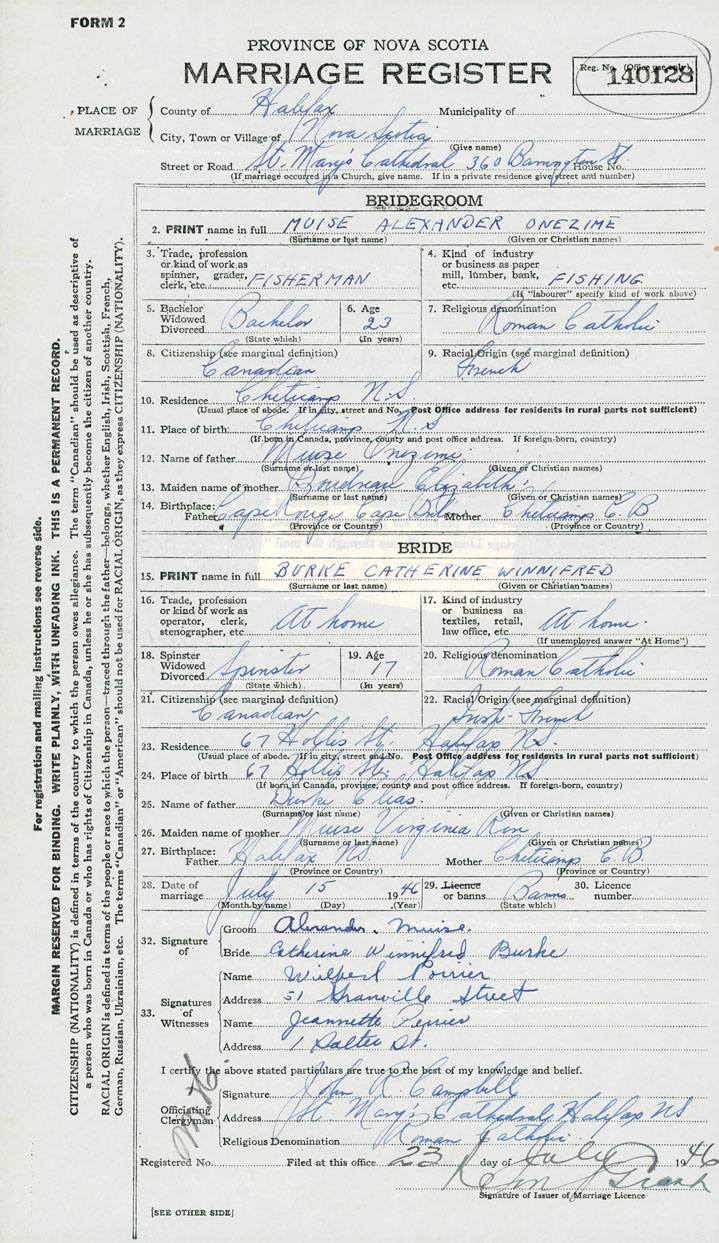 FORM 2
PROVINCE OF NOVA SCOTIA
MARRIAGE REGISTER
Reg. No. (Office use only)
140128
PLACE OF MARRIAGE
County of Halifax Municipality of
City, Town or Village of Nova Scotia
(Give name)
Street or Road St. Mary's Cathedral 360 Barrington St. House No.
(If marriage occurred in a Church, give name. If in a private residence give street and number)
BRIDEGROOM
2. PRINT name in full MUISE ALEXANDER ONEZIME
(Surname or last name) (Given or Christian names)
3. Trade, profession or kind of work as spinner, grader, clerk, etc. FISHERMAN
4. Kind of industry or business as paper mill, lumber, bank, etc. FISHING
(If "labourer" specify kind of work above)
5. Bachelor Widowed Divorced Bachelor
(State which)
6. Age 23
(In years)
7. Religious denomination Roman Catholic
8. Citizenship (see marginal definition) Canadian
9. Racial Origin (see marginal definition) French
10. Residence Cheticamp N.S.
(Usual place of abode. If in city, street and No. Post Office address for residents in rural parts not sufficient)
11. Place of birth Cheticamp N.S
(If born in Canada, province, county and post office address. If foreign-born, country)
12. Name of father Muise Onezime
(Surname or last name) (Given or Christian names)
13. Maiden name of mother Boudreau Elizabeth
(Surname or last name) (Given or Christian names)
14. Birthplace: Father Cape Rouge Cape Breton Mother Cheticamp C.B
(Province or Country) (Province or Country)
BRIDE
15. PRINT name in full BURKE CATHERINE WINNIFRED
(Surname or last name) (Given or Christian names)
16. Trade, profession or kind of work as operator, clerk, stenographer, etc. At home
17. Kind of industry or business as textiles, retail, law office, etc. At home.
(If unemployed answer "At Home")
18. Spinster Widowed Divorced Spinster
(State which)
19. Age 17
(In years)
20. Religious denomination Roman Catholic
21. Citizenship (see marginal definition) Canadian
22. Racial Origin (see marginal definition) Irish-French
23. Residence 67 Hollis St. Halifax N.S.
(Usual place of abode. If in city, street and No. Post Office address for residents in rural parts not sufficient)
24. Place of birth 67 Hollis St. Halifax N.S
(If born in Canada, province, county and post office address. If foreign-born, country)
25. Name of father Burke Elias.
(Surname or last name) (Given or Christian names)
26. Maiden name of mother Muise Virginia
(Surname or last name) (Given or Christian names)
27. Birthplace: Father Halifax N.S. Mother Cheticamp C.B.
(Province or Country) (Province or Country)
28. Date of marriage July 15 1946
(Month by name) (Day) (Year)
29. Licence or banns Banns
(State which)
30. Licence number
32. Signature of
Groom Alexander Muise.
Bride Catherine Winnifred Burke
33. Signatures of Witnesses
Name Poirier
Address 51 Granville Street
Name Jeannette
Address 1 Salter St.
I certify the above stated particulars are true to the best of my knowledge and belief.
Officiating Clergyman
Signature John R. Campbell
Address St. Mary's Cathedral, Halifax NS
Religious Denomination Roman Catholic
Registered No. Filed at this office 23 day of July 1946
Signature of Issuer of Marriage Licence
[SEE OTHER SIDE]
For registration and mailing instructions see reverse side.
MARGIN RESERVED FOR BINDING. WRITE PLAINLY, WITH UNFADING INK. THIS IS A PERMANENT RECORD.
CITIZENSHIP (NATIONALITY) is defined in terms of the country to which the person owes allegiance. The term "Canadian" should be used as descriptive of
a person who was born in Canada or who has rights of Citizenship in Canada, unless he or she has subsequently become the citizen of another country.
RACIAL ORIGIN is defined in terms of the people or race to which the person—traced through the father—belongs, whether English, Irish, Scottish, French,
German, Russian, Ukrainian, etc. The terms "Canadian" or "American" should not be used for RACIAL ORIGIN, as they express CITIZENSHIP (NATIONALITY).